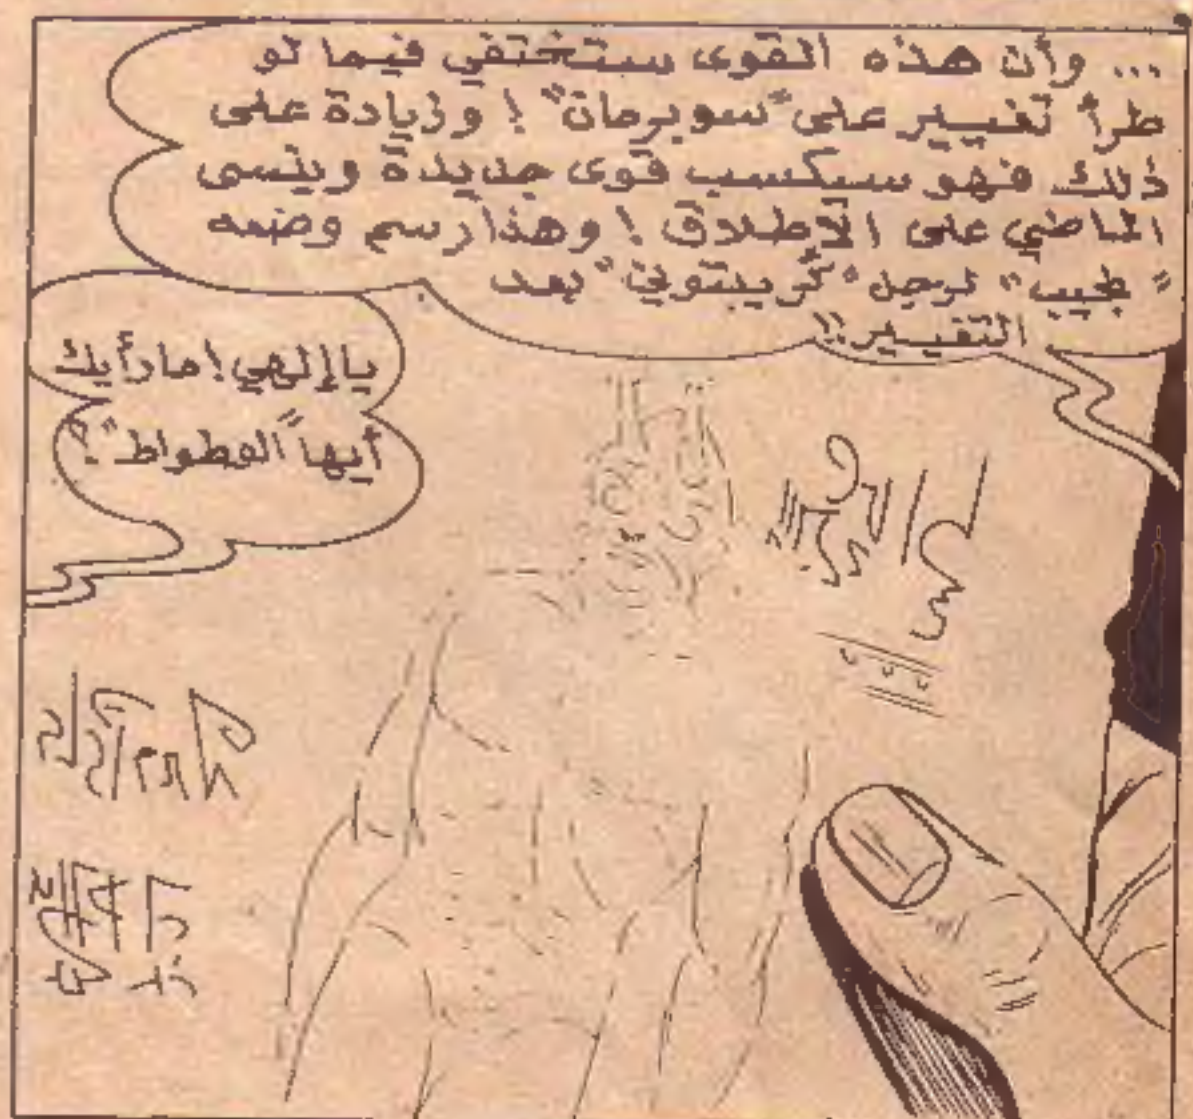 ... وأن هذه القوى ستختفي فيما لو
طرأ تغيير على "سوبرمان" ! وزيادة على
ذلك فهو سيكسب قوى جديدة وينسى
الماضي على الإطلاق ! وهذا رسم وضعه
"طبيب" لرجل "كريبتوني" بعد
التغيير !!
يا إلهي ! ما رأيك
أيها "الوطواط" ؟